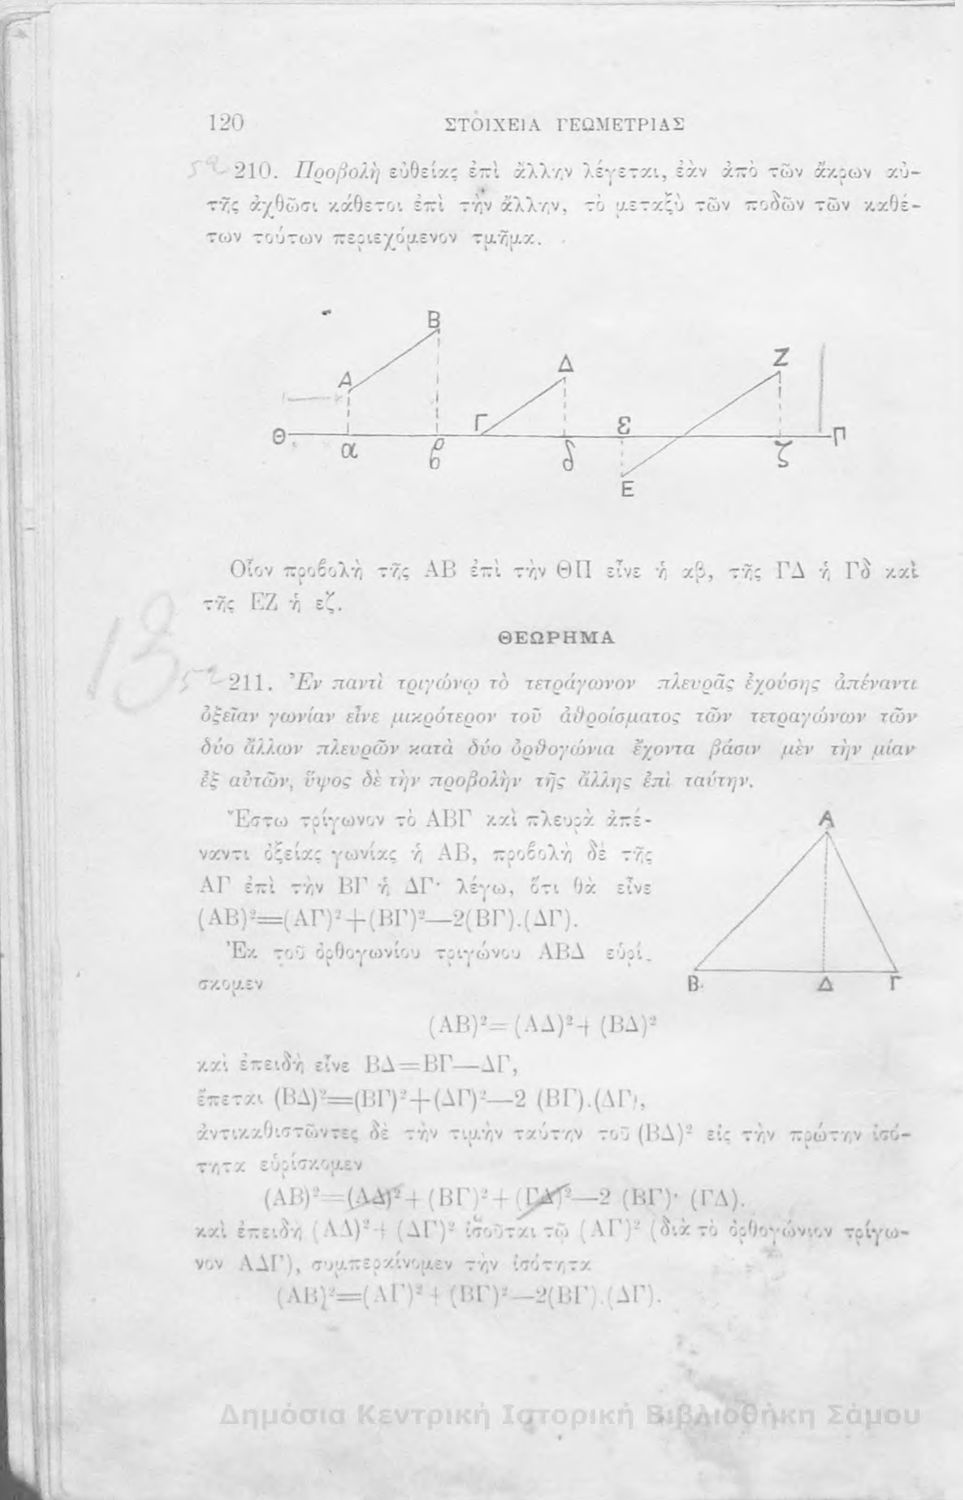 120 ΣΤΟΙΧΕΙΑ ΓΕΩΜΕΤΡΙΑΣ
210. Προβολὴ εὐθείας ἐπὶ ἄλλην λέγεται, ἐὰν ἀπὸ τῶν ἄκρων αὐ-
τῆς ἀχθῶσι κάθετοι ἐπὶ τὴν ἄλλην, τὸ μεταξὺ τῶν ποδῶν τῶν καθέ-
των τούτων περιεχόμενον τμῆμα.
Β
Α
Δ
Ζ
Γ
ε
Θ
Π
α
β
δ
ζ
Ε
Οἷον προβολὴ τῆς ΑΒ ἐπὶ τὴν ΘΠ εἶνε ἡ αβ, τῆς ΓΔ ἡ Γδ καὶ
τῆς ΕΖ ἡ εζ.
ΘΕΩΡΗΜΑ
211. Ἐν παντὶ τριγώνῳ τὸ τετράγωνον πλευρᾶς ἐχούσης ἀπέναντι
ὀξεῖαν γωνίαν εἶνε μικρότερον τοῦ ἀθροίσματος τῶν τετραγώνων τῶν
δύο ἄλλων πλευρῶν κατὰ δύο ὀρθογώνια ἔχοντα βάσιν μὲν τὴν μίαν
ἐξ αὐτῶν, ὕψος δὲ τὴν προβολὴν τῆς ἄλλης ἐπὶ ταύτην.
Ἔστω τρίγωνον τὸ ΑΒΓ καὶ πλευρὰ ἀπέ-
ναντι ὀξείας γωνίας ἡ ΑΒ, προβολὴ δὲ τῆς
ΑΓ ἐπὶ τὴν ΒΓ ἡ ΔΓ· λέγω, ὅτι θὰ εἶνε
(ΑΒ)²=(ΑΓ)²+(ΒΓ)²—2(ΒΓ).(ΔΓ).
Ἐκ τοῦ ὀρθογωνίου τριγώνου ΑΒΔ εὑρί-
σκομεν
Α
Β
Δ
Γ
(ΑΒ)²=(ΑΔ)²+ (ΒΔ)²
καὶ ἐπειδὴ εἶνε ΒΔ=ΒΓ—ΔΓ,
ἕπεται (ΒΔ)²=(ΒΓ)²+(ΔΓ)²—2 (ΒΓ).(ΔΓ),
ἀντικαθιστῶντες δὲ τὴν τιμὴν ταύτην τοῦ (ΒΔ)² εἰς τὴν πρώτην ἰσό-
τητα εὑρίσκομεν
(ΑΒ)²=(ΑΔ)²+(ΒΓ)²+(ΓΔ)²—2 (ΒΓ)· (ΓΔ).
καὶ ἐπειδὴ (ΑΔ)²+(ΔΓ)² ἰσοῦται τῷ (ΑΓ)² (διὰ τὸ ὀρθογώνιον τρίγω-
νον ΑΔΓ), συμπεραίνομεν τὴν ἰσότητα
(ΑΒ)²=(ΑΓ)²+(ΒΓ)²—2(ΒΓ).(ΔΓ).
Δημόσια Κεντρική Ιστορική Βιβλιοθήκη Σάμου